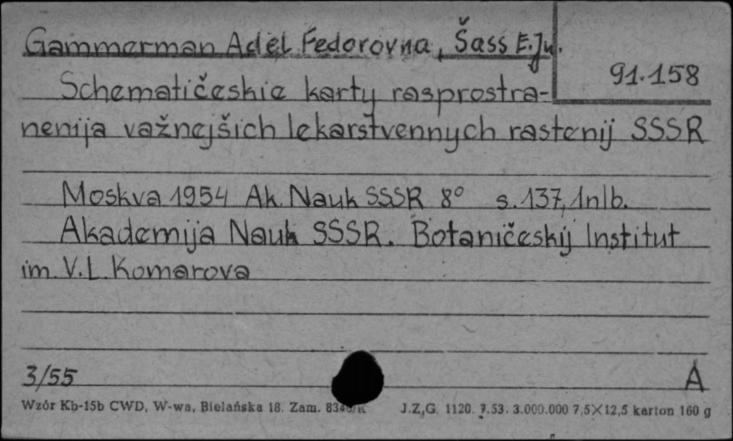 Gammerman Adel Fedorovna, Šass E.Ju.
91.158
Schematičeskie karty rasprostra-
nenija važnejšich lekarstvennych rastenij SSSR
Moskva 1954 Ak. Nauk SSSR 8° s. 137, 1nlb.
Akademija Nauk SSSR. Botaničeskij Institut
im. V. L. Komarova
3/55
A
Wzór Kb-15b CWD, W-wa, Bielańska 18. Zam. J.Z.G. 1120. 7.53. 3.000.000 7,5×12,5 karton 160 g